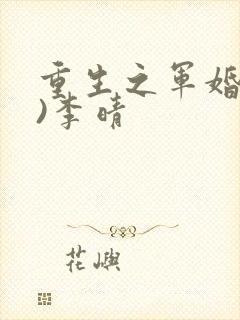 重生之军婚
)李晴
花嶼